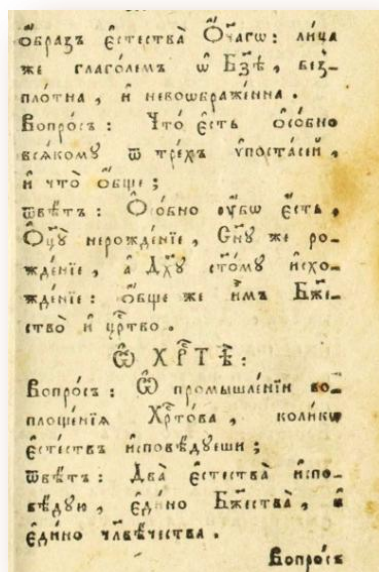 ѻ҆́бразъ є҆стества̀ Ѻ҆́ч҃агѡ: ли́ца
же глаго́лемъ ѡ҆ Бз҃ѣ, без̾-
пло́тна, и҆ невоѡбраже́нна.
Вопро́съ: Что́ є҆сть ѻ҆со́бно
всѧ́комꙋ ѿ тре́хъ ѵ҆поста́сей,
и҆ что̀ ѻ҆́бще;
ѿвѣ́тъ: Ѻ҆со́бно ᲂу҆́бѡ є҆́сть,
Ѻ҆ц҃ꙋ̀ нерожде́нїе, Сн҃ꙋ же ро-
жде́нїе, а҆ Дх҃ꙋ ст҃о́мꙋ и҆схо-
жде́нїе: ѻ҆́бще же и҆̀мъ Бж҃е-
ство̀ и҆ црⷭ҇тво.
Ѡ҆ ХРⷭ҇ТѢ̀:
Вопро́съ: Ѡ҆ промышле́нїи во-
площе́нїѧ Хрⷭ҇то́ва, коли́кѡ
є҆сте́ствъ и҆сповѣ́дꙋеши;
ѿвѣ́тъ: Два̀ є҆стества̀ и҆спо-
вѣ́дꙋю, є҆ди́но Бж҃ества̀, и҆
є҆ди́но чл҃вѣ́чества.
Вопро́съ